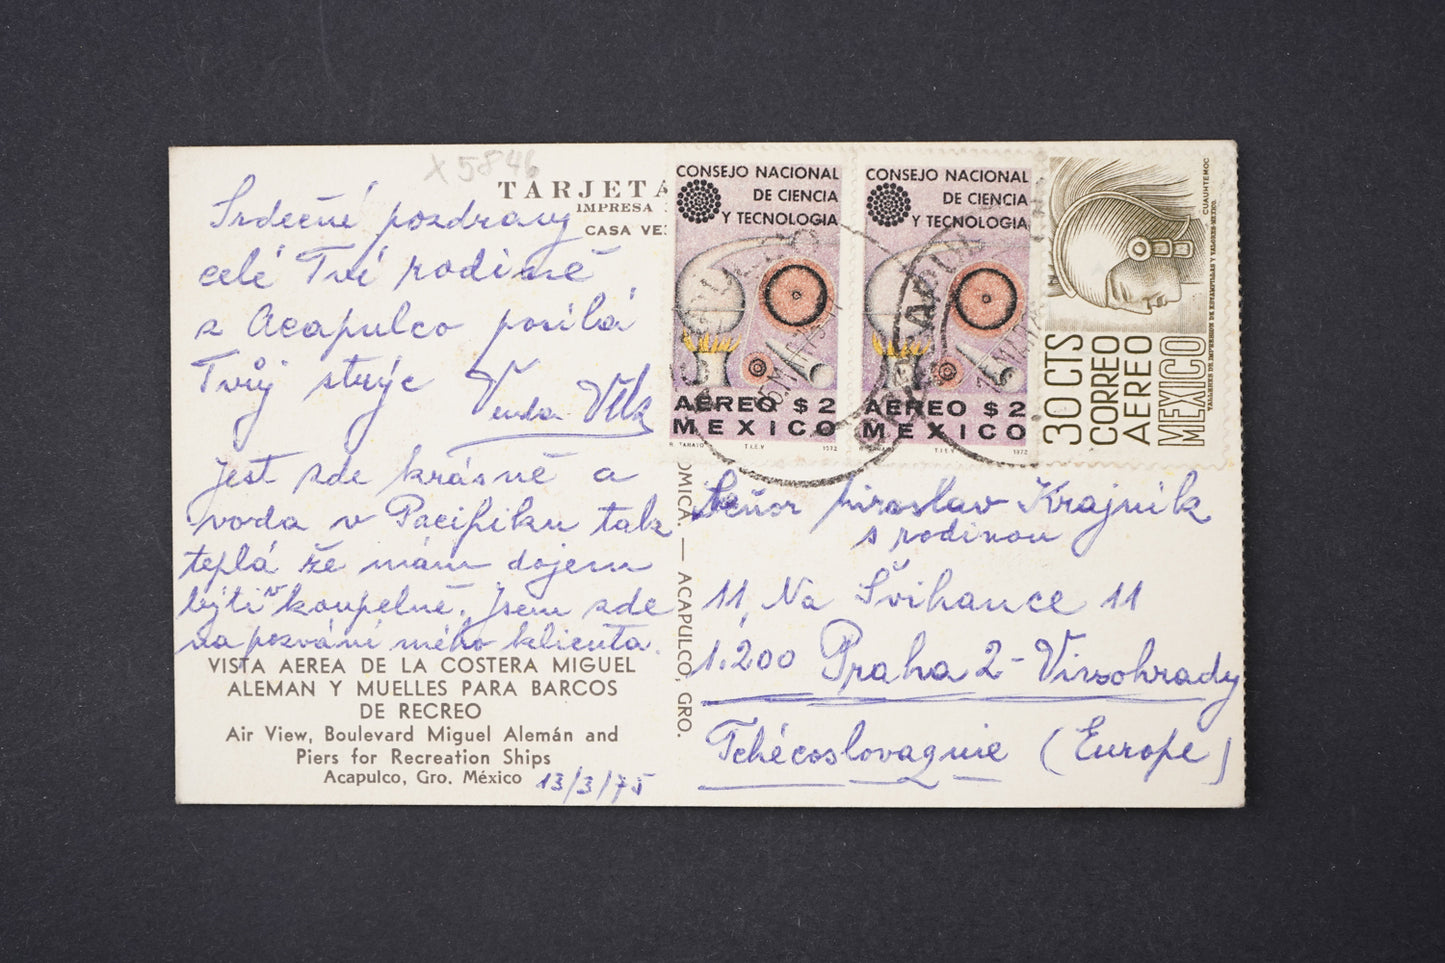 X 5846
TARJETA
IMPRESA
CASA VE
Srdečné pozdravy
celé Tvé rodině
z Acapulco posílá
Tvůj strýc
Jest zde krásně a
voda v Pacifiku tak
teplá že mám dojem
býti v koupelně. Jsem zde
na pozvání mého klienta.
VISTA AEREA DE LA COSTERA MIGUEL
ALEMAN Y MUELLES PARA BARCOS
DE RECREO
Air View, Boulevard Miguel Alemán and
Piers for Recreation Ships
Acapulco, Gro. México
13/3/75
OMICA. — ACAPULCO, GRO.
CONSEJO NACIONAL
DE CIENCIA
Y TECNOLOGIA
AEREO $2
MEXICO
T.I.E.V
1972
CONSEJO NACIONAL
DE CIENCIA
Y TECNOLOGIA
AEREO $2
MEXICO
T.I.E.V
1972
30 CTS
CORREO
AEREO
MEXICO
CUAUHTEMOC
TALLERES DE IMPRESION DE ESTAMPILLAS Y VALORES-MEXICO.
Señor Miroslav Krajník
s rodinou
11, Na Švihance 11
1.200 Praha 2 - Vinohrady
Tchécoslovaquie (Europe)